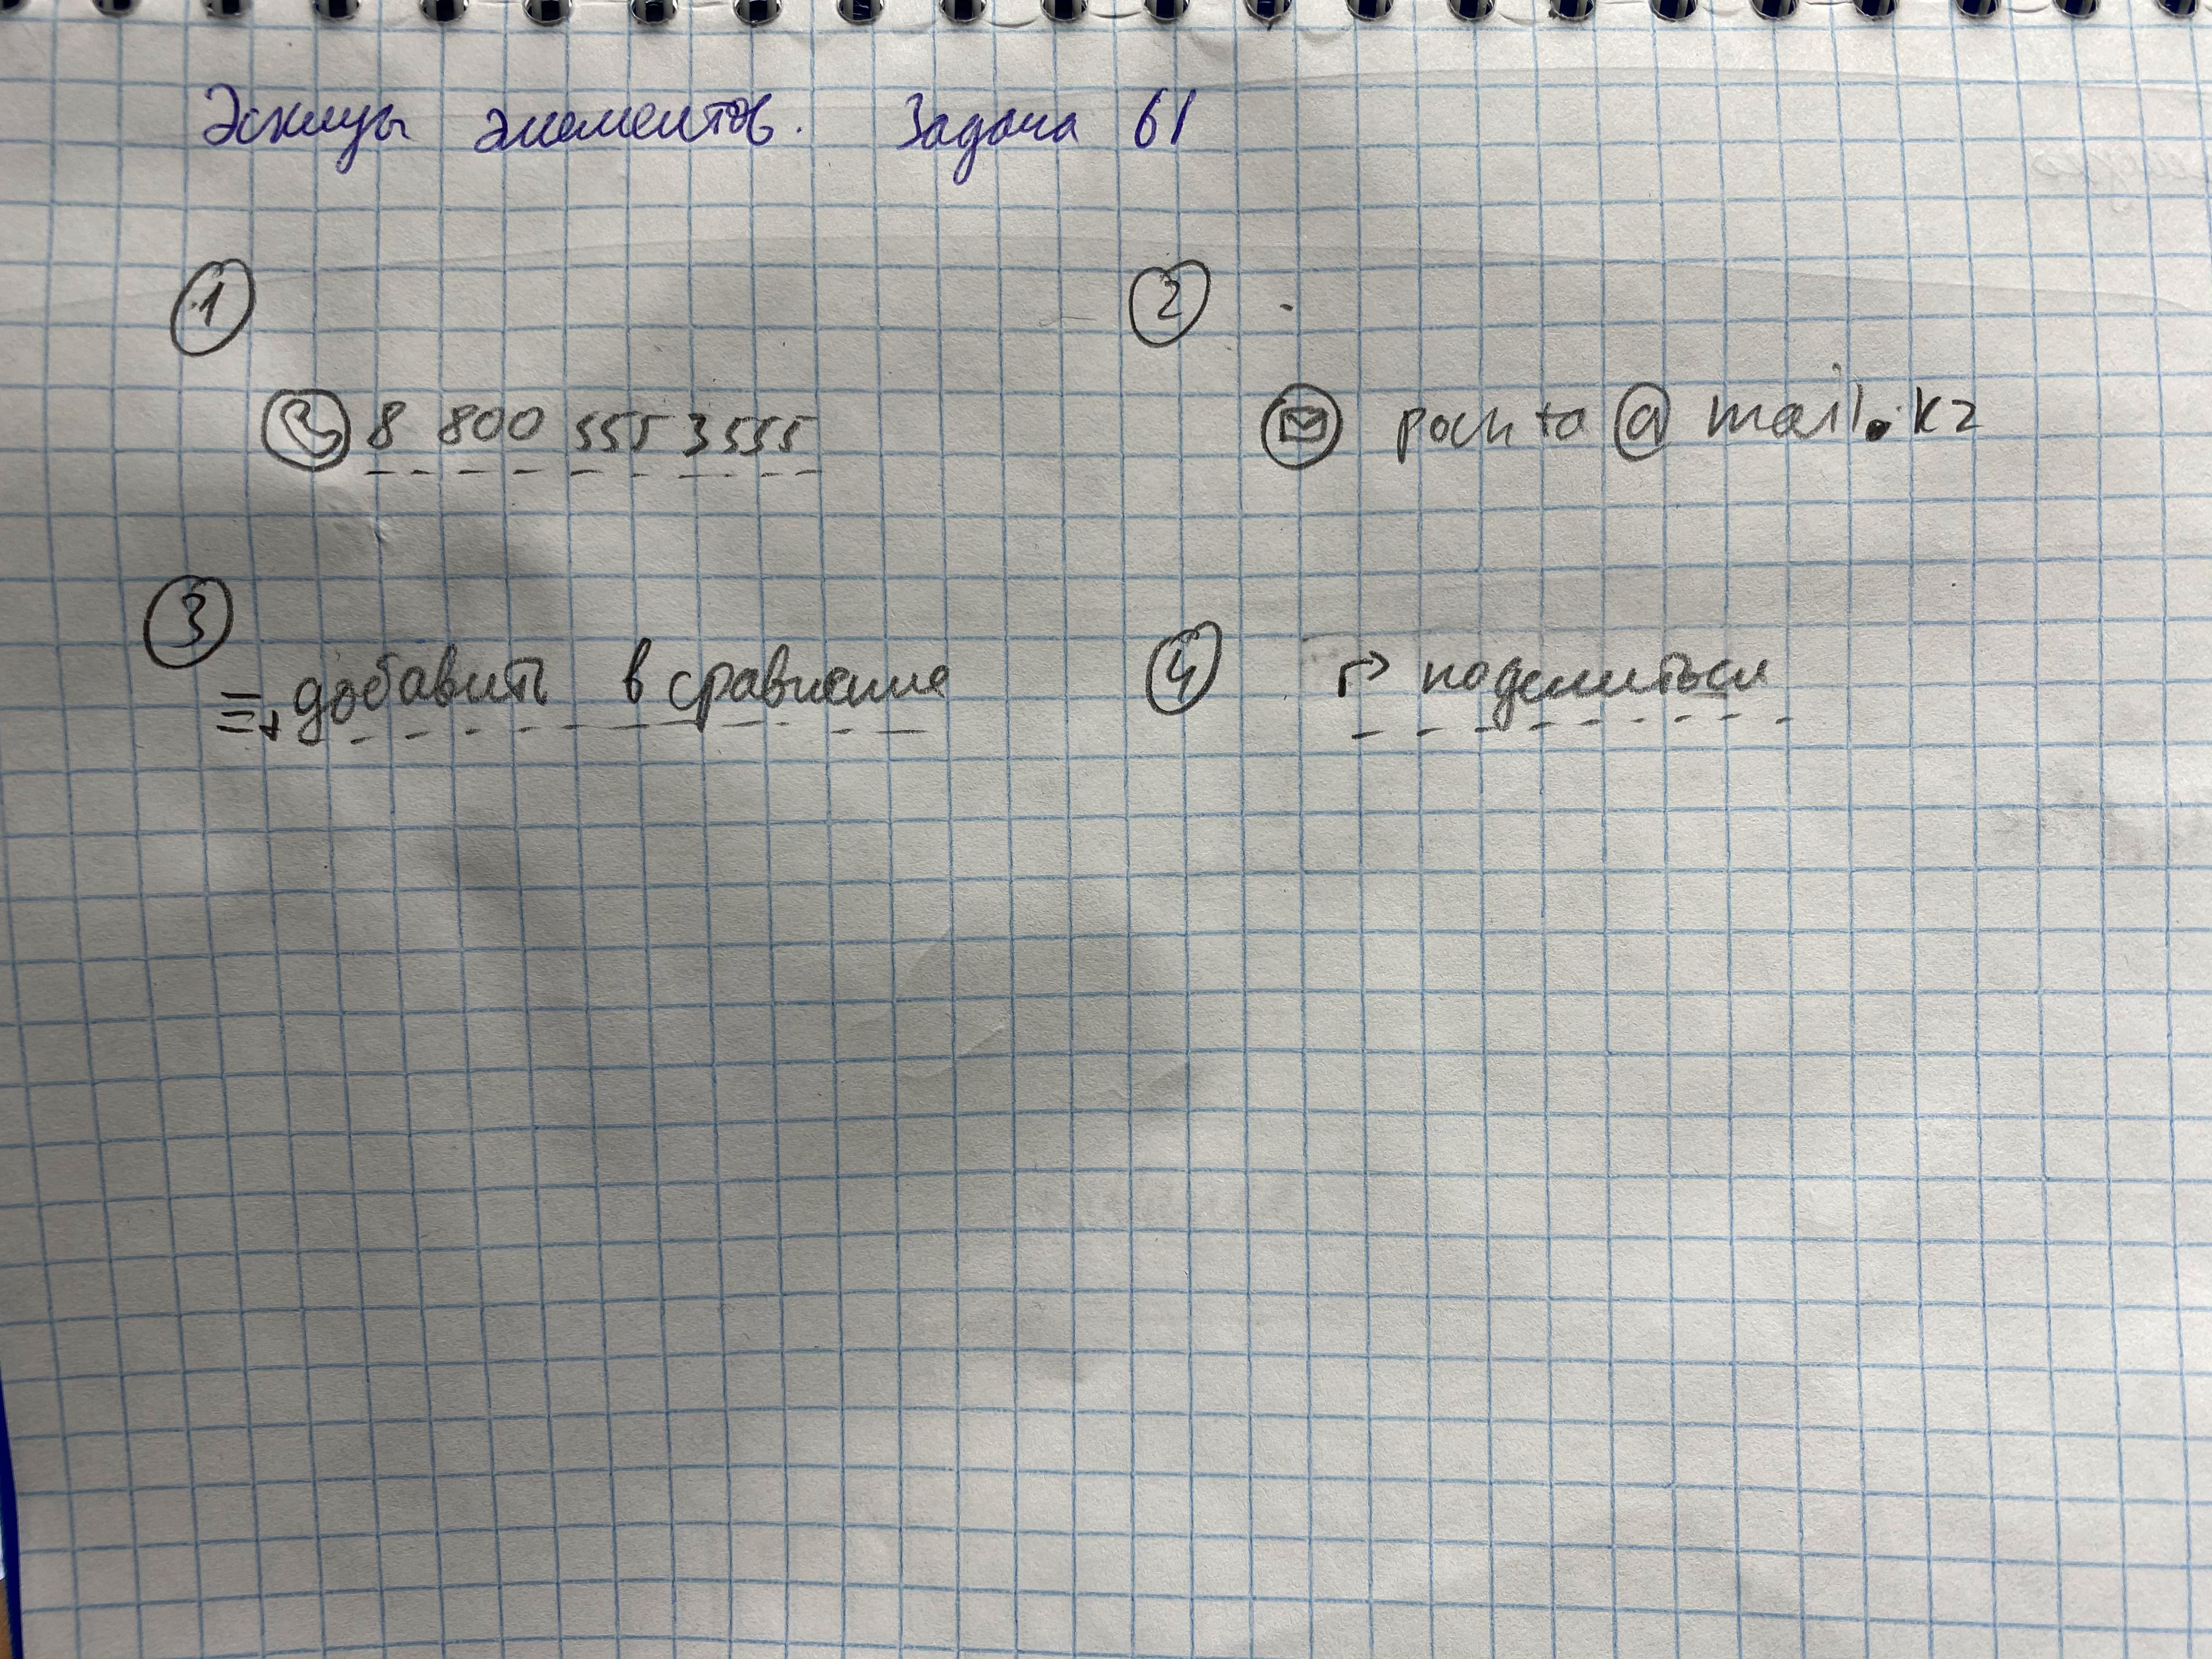 Эскизы элементов. Задача 61
1
2
8 800 555 3555
pochta@mail.kz
3
4
добавить в сравнение
поделиться